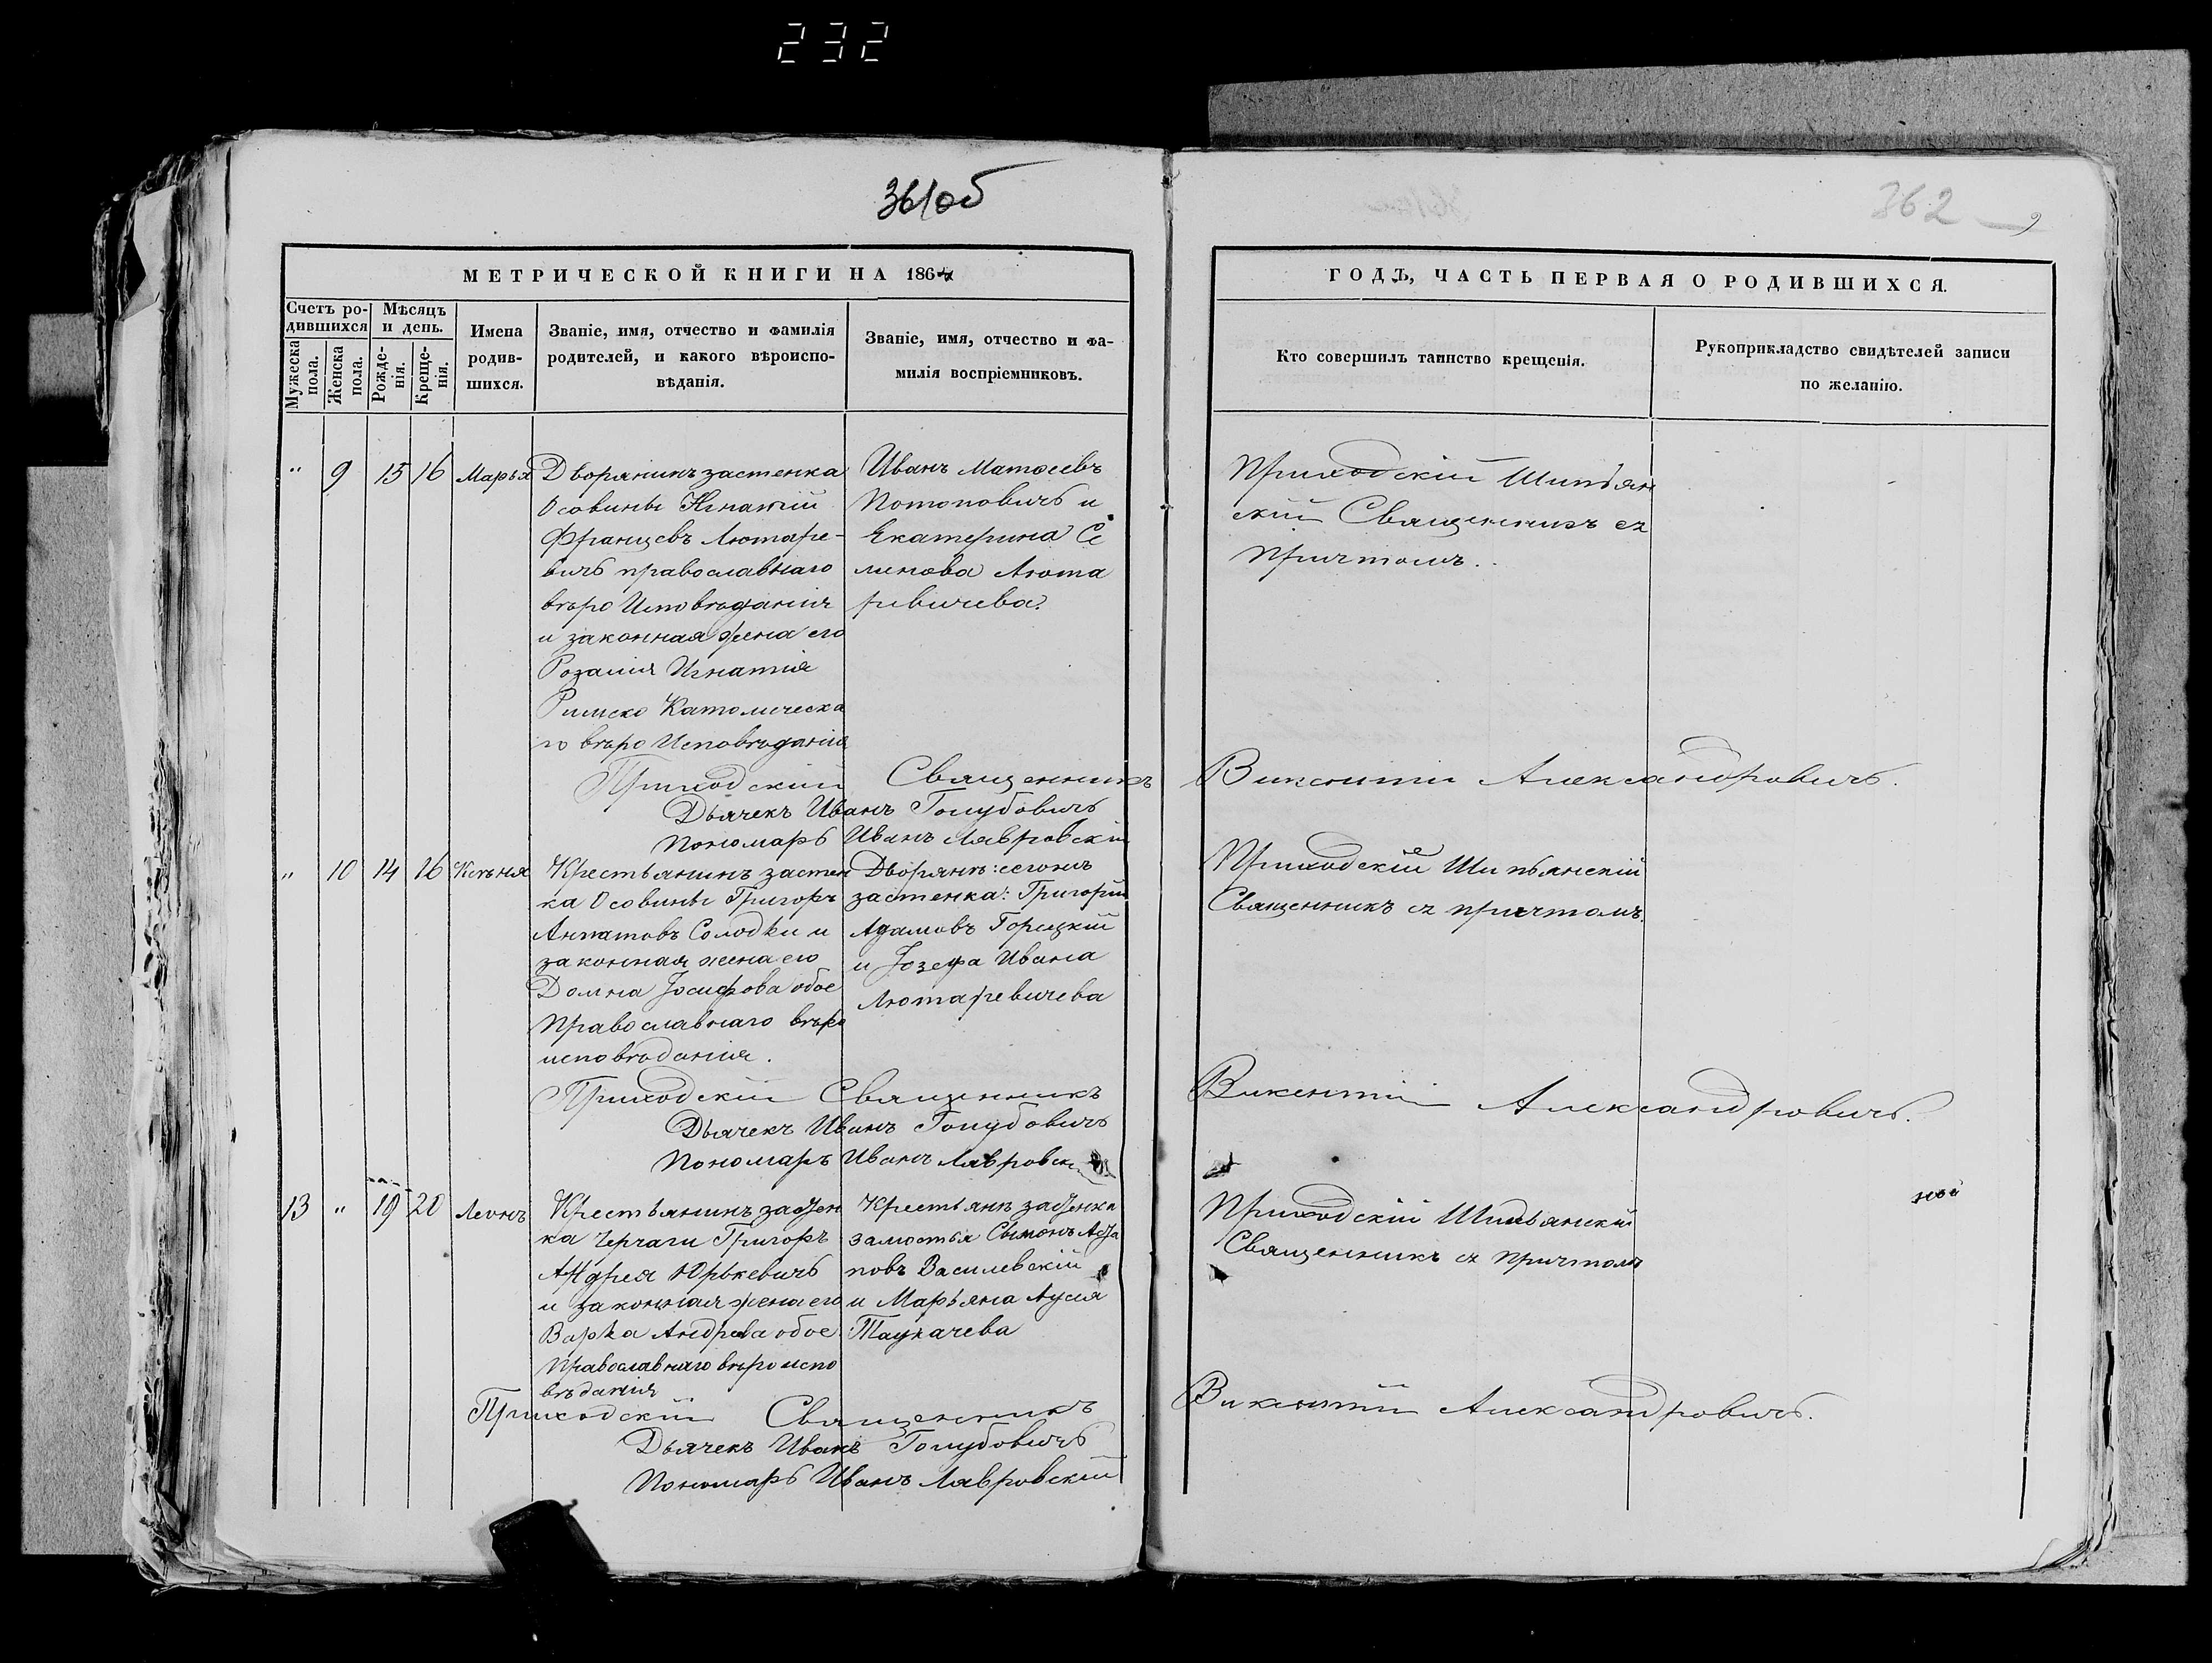 232
361об
362
9
МЕТРИЧЕСКОЙ КНИГИ НА 1864
ГОДЪ, ЧАСТЬ ПЕРВАЯ О РОДИВШИХСЯ.
Счетъ ро-
дившихся
Мужеска
пола.
Женска
пола.
Мѣсяцъ
и день.
Рожде-
нія.
Креще-
нія.
Имена
родив-
шихся.
Званіе, имя, отчество и фамилія
родителей, и какого вѣроиспо-
вѣданія.
Званіе, имя, отчество и фа-
милія воспріемниковъ.
Кто совершилъ таинство крещенія.
Рукоприкладство свидѣтелей записи
по желанію.
" 9 15 16 Марья
Дворянинъ застенка
Осовины Игнатій
Францевъ Лютаре-
вичъ православнаго
вѣро Исповѣданія
и законная жена его
Розалия Игнатия
Римско Католическа
го вѣро Исповѣдания
Иванъ Матѳеевъ
Потоповичъ и
Екатерина Се
ликова Люта
ревичева.
Приходскій Шипьян
скій Священникъ съ
Причтомъ.
Приходскій Священникъ Викентий Александровичъ.
Дьячекъ Иванъ Голубовичъ
Пономарь Иванъ Лавровскій
" 10 14 16 Ксенія
Крестьянинъ застен
ка Осовины Григорь
Солодки и
законная жена его
Домна Іосифова обое
Православнаго вѣро
исповѣдания.
Дворянъ: сегожъ
застенка: Григорій
Адамовъ Горецкій
и Іозефа Ивана
Лютаревичева
Приходскій Шипьянскій
Священникъ съ причтомъ.
Приходскій Священникъ Викентій Александровичъ.
Дьячекъ Иванъ Голубовичъ
Пономарь Иванъ Лавровск
13 " 19 20 Леонъ
Крестьянинъ застен
ка Черчаги Григорь
Андрея Юрькевичъ
и законная жена его
Варка Андрева обое
Православнаго вѣроиспо
вѣдания
Крестьянъ застенка
замостья Сымонъ
повъ Василевскій
и Марьяна
Ткачева
Приходскій Шипьянскій
Священникъ съ причтомъ
Приходскій Священникъ Викентій Александровичъ.
Дьячекъ Иванъ Голубовичъ
Пономарь Иванъ Лавровскій